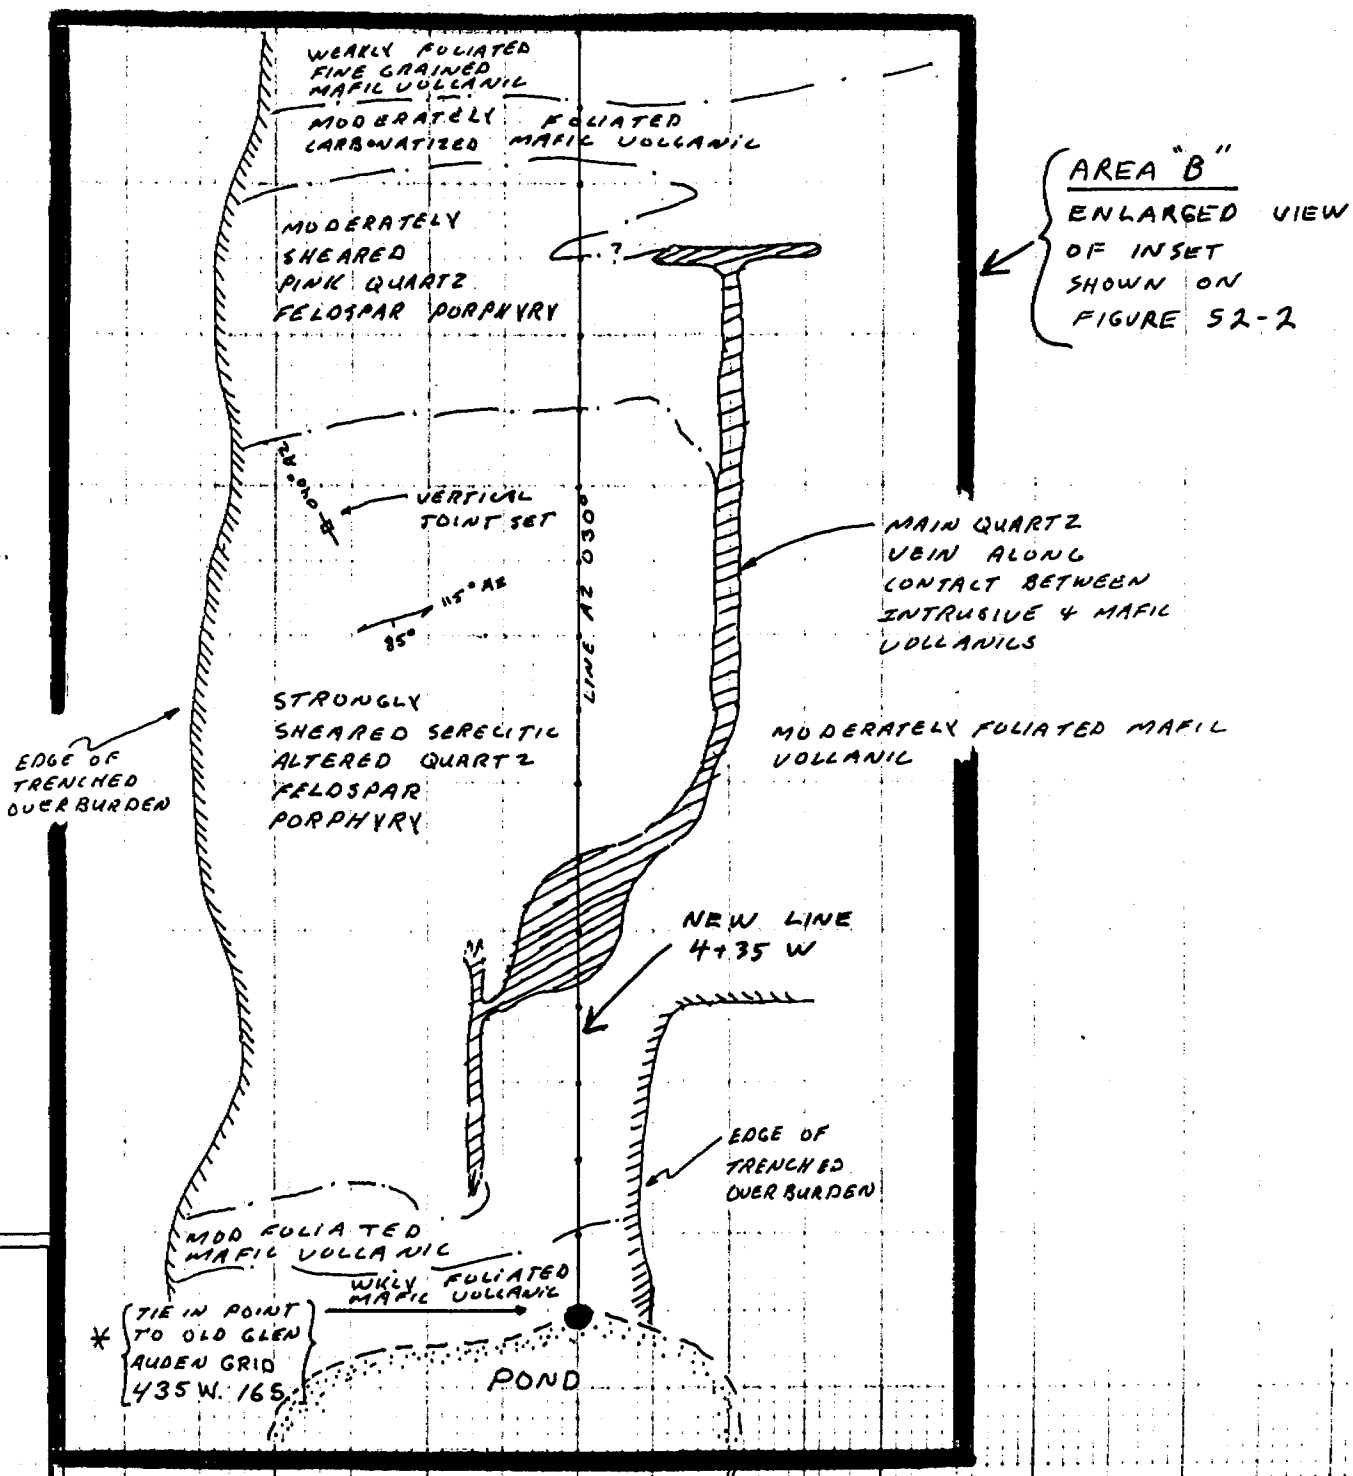 WEAKLY FOLIATED
FINE GRAINED
MAFIC VOLCANIC
MODERATELY FOLIATED
CARBONATIZED MAFIC VOLCANIC
AREA "B"
ENLARGED VIEW
OF INSET
SHOWN ON
FIGURE 52-2
MODERATELY
SHEARED
PINK QUARTZ
FELDSPAR PORPHYRY
?
040° AZ
VERTICAL
JOINT SET
LINE AZ 030°
115° AZ
85°
MAIN QUARTZ
VEIN ALONG
CONTACT BETWEEN
INTRUSIVE & MAFIC
VOLCANICS
STRONGLY
SHEARED SERICITIC
ALTERED QUARTZ
FELDSPAR
PORPHYRY
MODERATELY FOLIATED MAFIC
VOLCANIC
EDGE OF
TRENCHED
OVERBURDEN
NEW LINE
4+35 W
EDGE OF
TRENCHED
OVERBURDEN
MOD FOLIATED
MAFIC VOLCANIC
WKLY FOLIATED
MAFIC VOLCANIC
* TIE IN POINT
TO OLD GLEN
AUDEN GRID
435W. 16S
POND